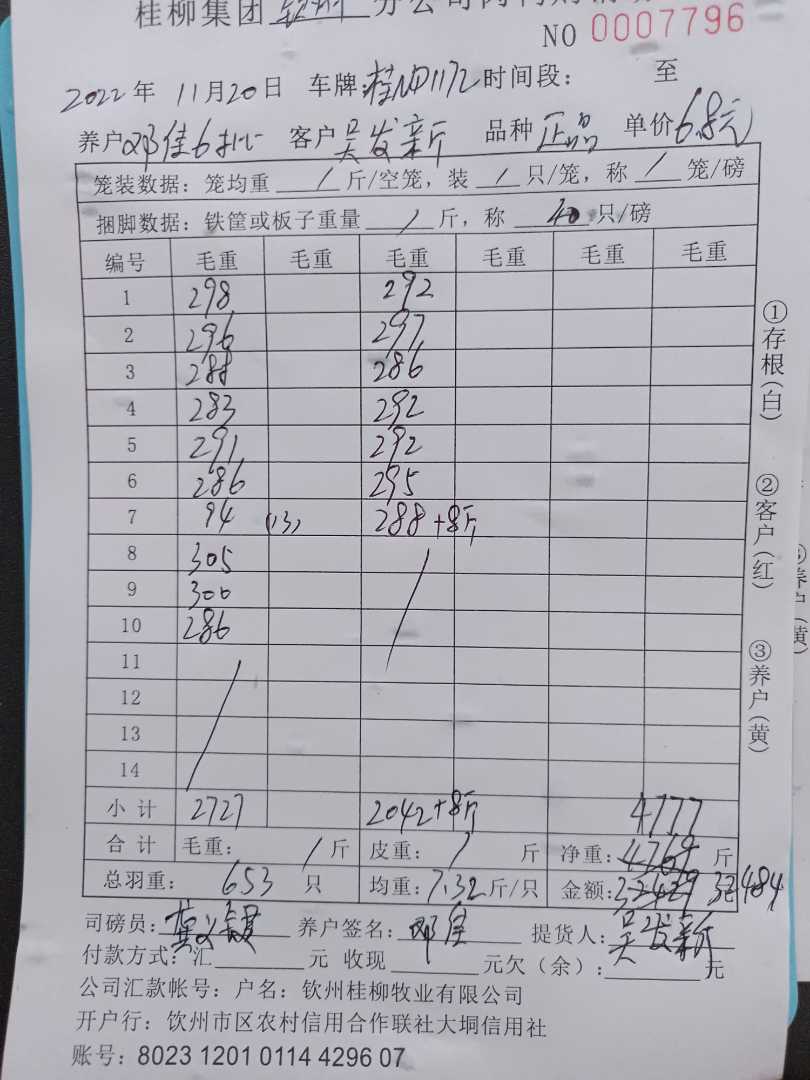 桂柳集团 钦州 分公司肉
NO 0007796
2022年 11月20日 车牌:桂ND1172 时间段: 至
养户 邓佳6 客户 吴发新 品种 正品 单价 6.8元
笼装数据: 笼均重 / 斤/空笼, 装 / 只/笼, 称 / 笼/磅
捆脚数据: 铁筐或板子重量 / 斤, 称 40 只/磅
编号 毛重 毛重 毛重 毛重 毛重 毛重
1 298 292
2 296 297
3 288 286
4 283 292
5 291 292
6 286 295
7 94 (13) 288+8斤
8 305
9 300
10 286
11
12
13
14
小计 2727 2042+8斤 4777
合计 毛重: / 斤 皮重: / 斤 净重: 4769 斤
总羽重: 653 只 均重: 7.32 斤/只 金额: 32429 32484
司磅员: 养户签名: 邓佳 提货人: 吴发新
付款方式: 汇 元 收现 元欠(余): 元
公司汇款帐号: 户名: 钦州桂柳牧业有限公司
开户行: 钦州市区农村信用合作联社大垌信用社
账号: 8023 1201 0114 4296 07
①存根(白)
②客户(红)
③养户(黄)